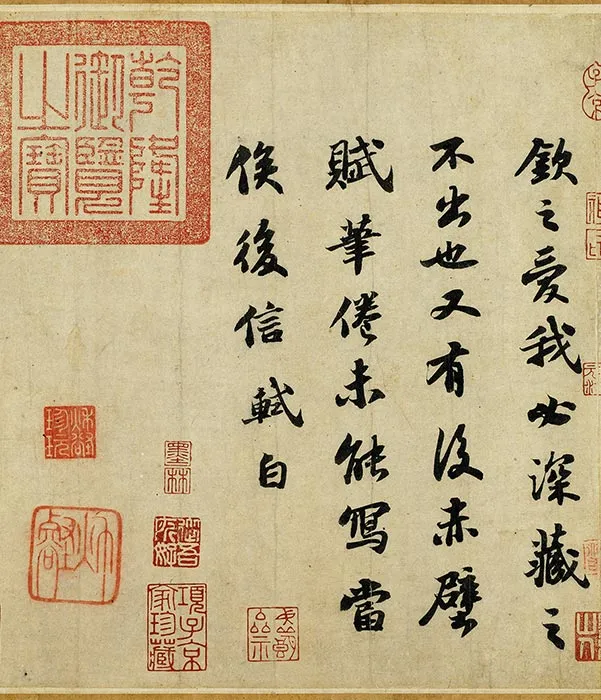 欽之愛我必深藏之
不出也又有後赤壁
賦筆倦未能寫當
俟後信軾白
乾隆御覽之寶
子京
墨林
項子京家珍藏